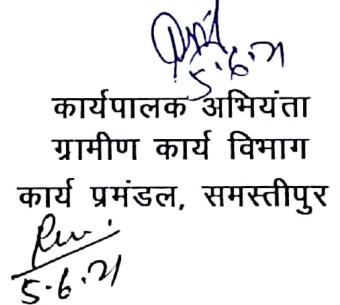 5.6.21
कार्यपालक अभियंता
ग्रामीण कार्य विभाग
कार्य प्रमंडल, समस्तीपुर
5.6.21